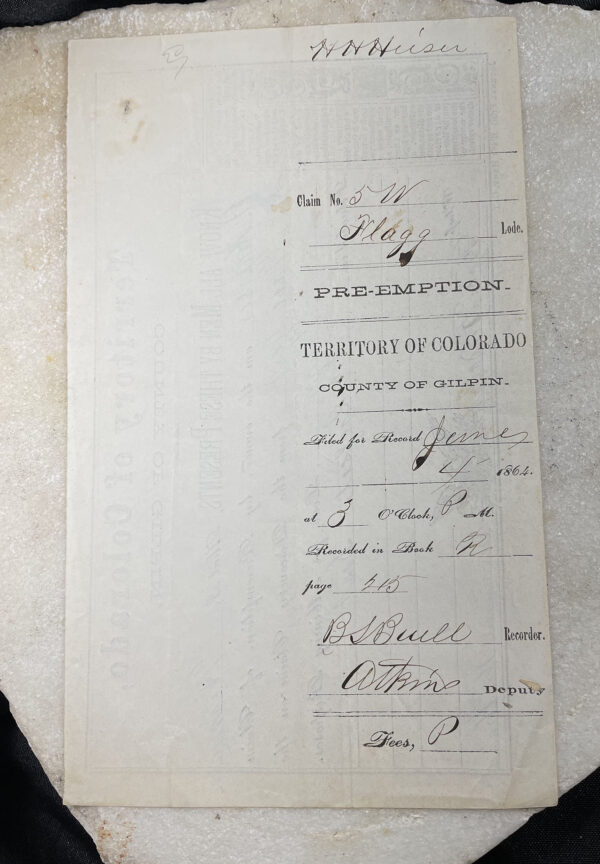 H H Heiser
Claim No. 5 W
Flagg Lode.
PRE-EMPTION.
TERRITORY OF COLORADO
COUNTY OF GILPIN.
Filed for Record June
4 1864.
at 3 O'Clock, P M.
Recorded in Book
page 215
B S Buell Recorder.
Atkins Deputy
Fees, P